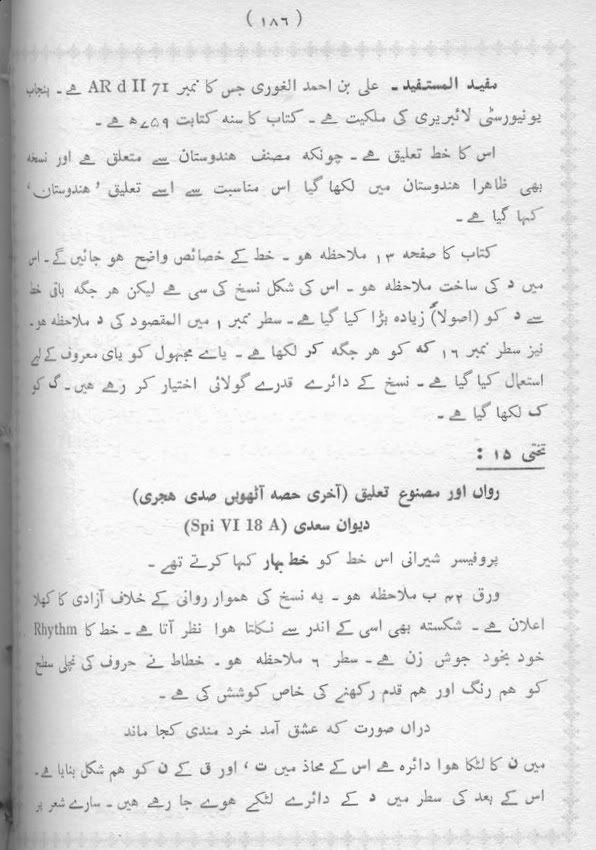 ( ۱۸۶ )
مفید المستفید ۔ علی بن احمد الغوری جس کا نمبر AR d II 71 ہے ۔ پنجاب
یونیورسٹی لائبریری کی ملکیت ہے ۔ کتاب کا سنہ کتابت ۷۵۹ھ ہے ۔
اس کا خط تعلیق ہے ۔ چونکہ مصنف هندوستان سے متعلق ہے اور نسخه
بھی ظاهرا هندوستان میں لکھا گیا اس مناسبت سے اسے تعلیق 'هندوستان'
کہا گیا ہے ۔
کتاب کا صفحه ۱۳ ملاحظه هو ۔ خط کے خصائص واضح هو جائیں گے ۔ اس
میں د کی ساخت ملاحظه هو ۔ اس کی شکل نسخ کی سی ہے لیکن هر جگه باقی خط
سے د کو (اصولاً) زیاده بڑا کیا گیا ہے ۔ سطر نمبر ۱ میں المقصود کی د ملاحظه هو۔
نیز سطر نمبر ۱۶ که کو هر جگه کر لکھا ہے ۔ یاے مجہول کو یای معروف کے لیے
استعمال کیا گیا ہے ۔ نسخ کے دائرے قدرے گولائی اختیار کر رہے هیں ۔ گ کو
ک لکھا گیا ہے ۔
تختی ۱۵ :
رواں اور مصنوع تعلیق (آخری حصه آٹھویں صدی هجری)
دیوان سعدی (Spi VI 18 A)
پروفیسر شیرانی اس خط کو خط بہار کہا کرتے تھے ۔
ورق ۴۲ ب ملاحظه هو ۔ یه نسخ کی هموار روانی کے خلاف آزادی کا کھلا
اعلان ہے ۔ شکسته بھی اسی کے اندر سے نکلتا هوا نظر آتا ہے ۔ خط کا Rhythm
خود بخود جوش زن ہے ۔ سطر ۶ ملاحظه هو ۔ خطاط نے حروف کی نچلی سطح
کو هم رنگ اور هم قدم رکھنے کی خاص کوشش کی ہے ۔
دراں صورت که عشق آمد خرد مندی کجا ماند
میں ن کا لٹکا هوا دائره ہے اس کے محاذ میں ت ، اور ق کے ن کو هم شکل بنایا ہے ۔
اس کے بعد کی سطر میں د کے دائرے لٹکے هوے جا رہے هیں ۔ سارے شعر پر